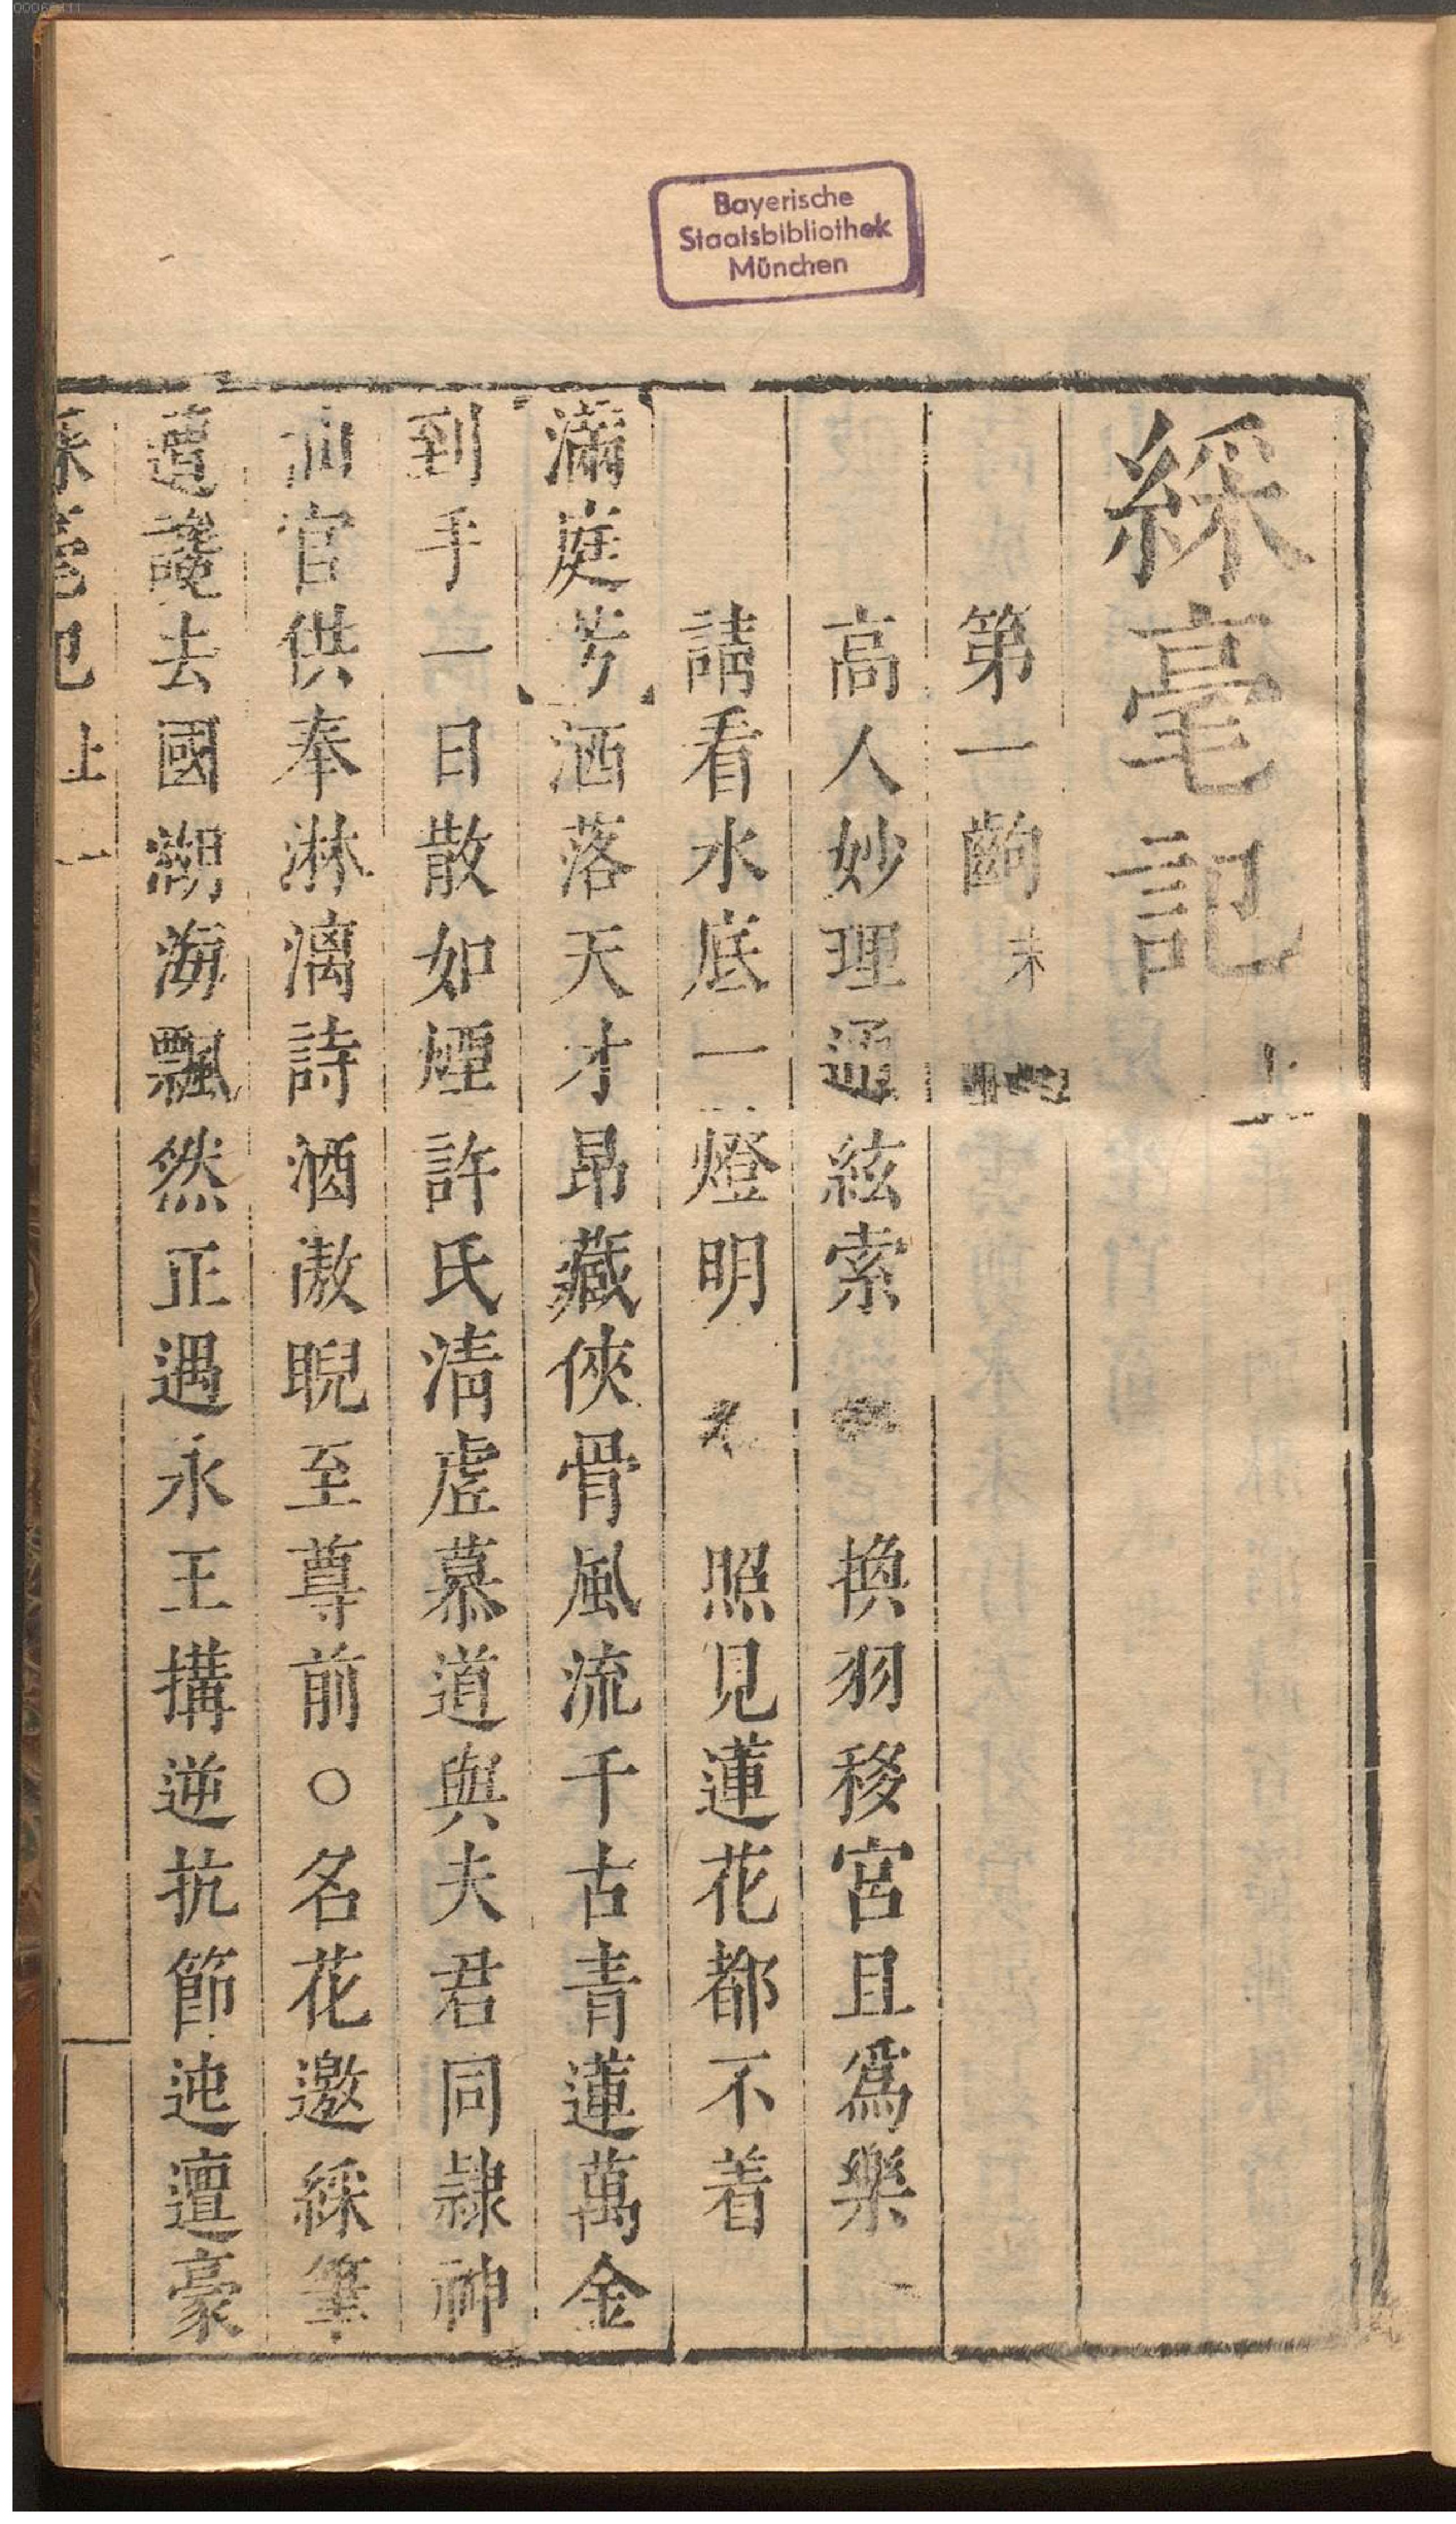 Bayerische
Staatsbibliothek
München
綵毫記 上
第一齣 末
高人妙理通絃索 換羽移宮且爲樂
請看水底一燈明 照見蓮花都不着
滿庭芳 洒落天才昻藏俠骨風流千古青蓮萬金
到手一日散如煙許氏淸虛慕道與夫君同隷神
仙官供奉淋漓詩酒傲睨至尊前○名花邀綵筆
遭讒去國湖海飄然正遇永王搆逆抗節迍邅豪
綵毫記 上 一